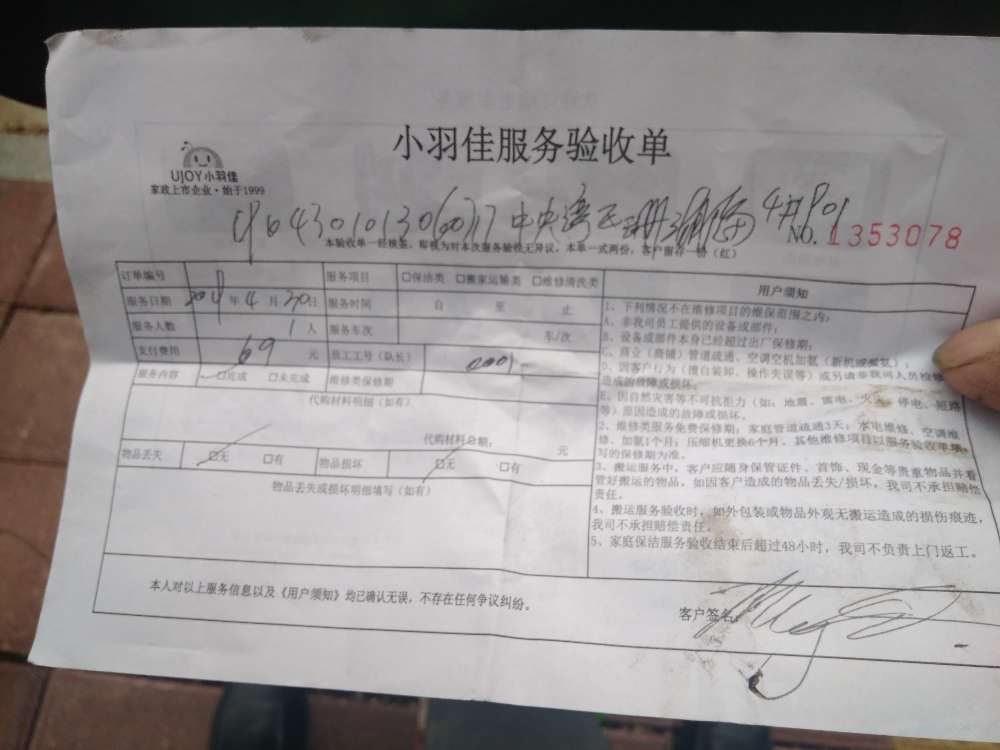 小羽佳服务验收单
UJOY小羽佳
家政上市企业·始于1999
中央湾
NO. 1353078
本验收单一经接签,即视为对本次服务验收无异议。本单一式两份,客户留存一份(红)
订单编号 服务项目 □保洁类 □搬家运输类 □维修清洗类
服务日期 年 4 月 30 日 服务时间 自 至 止
服务人数 1 人 服务车次 车/次
支付费用 69 元 员工工号(队长)
服务内容 □完成 □未完成 维修类保修期
代购材料明细(如有)
代购材料总额: 元
物品丢失 □无 □有 物品损坏 □无 □有
物品丢失或损坏明细填写(如有)
本人对以上服务信息以及《用户须知》均已确认无误,不存在任何争议纠纷。
用户须知
1、下列情况不在维修项目的维保范围之内:
A、非我司员工提供的设备或部件;
B、设备或部件本身已经超过出厂保修期;
C、商业(商铺)管道疏通、空调空机加氨(新机或搬家);
D、因客户行为(擅自装卸、操作失误等)或另请非我司人员检修
造成的故障或损坏;
E、因自然灾害等不可抗拒力(如:地震、雷电、火灾、停电、短路
等)原因造成的故障或损坏。
2、维修类服务免费保修期:家庭管道疏通3天;水电维修、空调维
修、加氨1个月;压缩机更换6个月。其他维修项目以服务验收单填
写的保修期为准。
3、搬运服务中,客户应随身保管证件、首饰、现金等贵重物品并看
管好搬运的物品。如因客户造成的物品丢失/损坏,我司不承担赔偿
责任。
4、搬运服务验收时,如外包装或物品外观无搬运造成的损伤痕迹,
我司不承担赔偿责任。
5、家庭保洁服务验收结束后超过48小时,我司不负责上门返工。
客户签名: